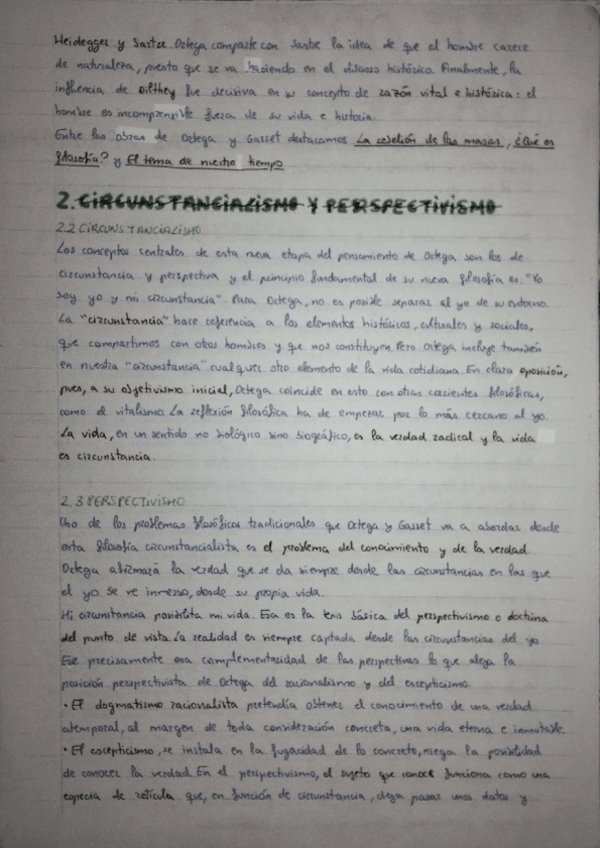 Heidegger y Sartre. Ortega comparte con Sartre la idea de que el hombre carece
de naturaleza, puesto que se va haciendo en el discurso histórico. Finalmente, la
influencia de Dilthey fue decisiva en su concepto de razón vital e histórica: el
hombre es incomprensible fuera de su vida e historia.
Entre las obras de Ortega y Gasset destacamos La rebelión de las masas, ¿Qué es
filosofía? y El tema de nuestro tiempo
2. CIRCUNSTANCIALISMO Y PERSPECTIVISMO
2.2 CIRCUNSTANCIALISMO
Los conceptos centrales de esta nueva etapa del pensamiento de Ortega son los de
circunstancia y perspectiva y el principio fundamental de su nueva filosofía es: "Yo
soy yo y mi circunstancia". Para Ortega, no es posible separar al yo de su entorno.
La "circunstancia" hace referencia a los elementos históricos, culturales y sociales,
que compartimos con otros hombres y que nos constituyen. Pero Ortega incluye también
en nuestra "circunstancia" cualquier otro elemento de la vida cotidiana. En clara oposición,
pues, a su objetivismo inicial, Ortega coincide en esto con otras corrientes filosóficas,
como el vitalismo. La reflexión filosófica ha de empezar por lo más cercano al yo.
La vida, en un sentido no biológico sino biográfico, es la verdad radical y la vida
es circunstancia.
2.3 PERSPECTIVISMO
Uno de los problemas filosóficos tradicionales que Ortega y Gasset va a abordar desde
esta filosofía circunstancialista es el problema del conocimiento y de la verdad.
Ortega afirmará la verdad que se da siempre desde las circunstancias en las que
el yo se ve inmerso, desde su propia vida.
Mi circunstancia posibilita mi vida. Esa es la tesis básica del perspectivismo o doctrina
del punto de vista. La realidad es siempre captada desde las circunstancias del yo
Es precisamente esa complementaridad de las perspectivas lo que aleja la
posición perspectivista de Ortega del racionalismo y del escepticismo.
• El dogmatismo racionalista pretendía obtener el conocimiento de una verdad
atemporal, al margen de toda consideración concreta, una vida eterna e inmutable.
• El escepticismo, se instala en la fugacidad de lo concreto, niega la posibilidad
de conocer la verdad. En el perspectivismo, el sujeto que conoce funciona como una
especie de retícula que, en función de circunstancia, deja pasar unos datos y